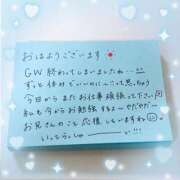 おはようございます
GW 終わってしまいましたね…
ずっと休みでいいのに〜って思っちゃう
今日からまたお仕事頑張って下さい
私も今からお勉強するよ〜やだやだ〜
お兄さんのこと応援しています
いってらっしゃーーい!!